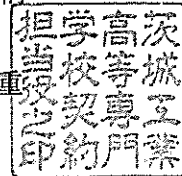 茨城工業
高等専門
学校契約
担当役之印
重